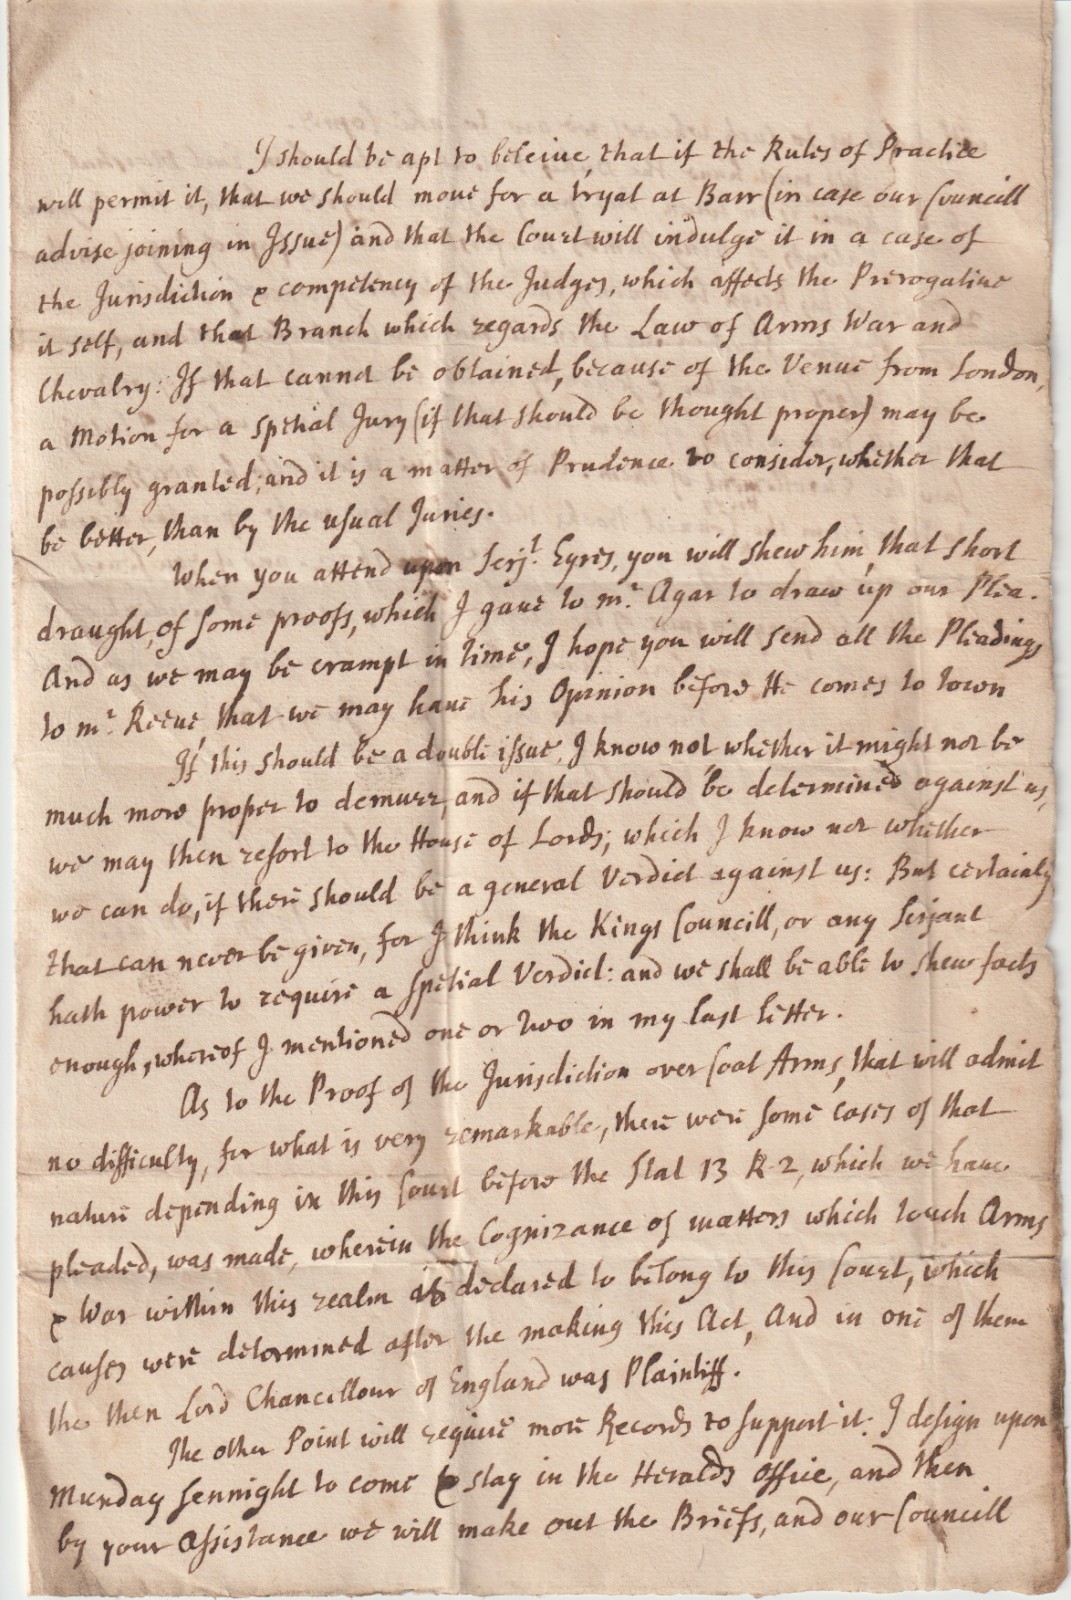 I should be apt to beleive, that if the Rules of Practice
will permit it, that we should move for a tryal at Barr (in case our Councill
advise joining in Issue) and that the Court will indulge it in a case of
the Jurisdiction & competency of the Judges, which affects the Prerogative
it self, and that Branch which regards the Law of Arms War and
Chevalry: If that cannot be obtained, because of the Venue from London,
a Motion for a spetial Jury (if that should be thought proper) may be
possibly granted; and it is a matter of Prudence to consider, whether that
be better, than by the usual Juries.
When you attend upon Serjt. Eyres, you will shew him, that short
draught, of some proofs, which I gave to mr. Agar to draw up our Plea.
And as we may be crampt in time, I hope you will send all the Pleadings
to mr. Reeve, that we may have his Opinion before He comes to town
If this should be a double issue, I know not, whether it might not be
much more proper to demurr, and if that should be determined against us,
we may then resort to the House of Lords; which I know not whether
we can do, if there should be a general Verdict against us: But certainly
that can never be given, for I think the Kings Councill, or any Serjant
hath power to require a spetial Verdict: and we shall be able to shew facts
enough, whereof I mentioned one or two in my last Letter.
As to the Proof of the Jurisdiction over Coat Arms, that will admit
no difficulty, for what is very remarkable, there were some cases of that
nature depending in this Court before the Stat 13 R 2, which we have
pleaded, was made, wherein the Cognizance of matters which touch Arms
& War within this realm is declared to belong to this Court, which
causes were determined after the making this Act, And in one of them
the then Lord Chancellour of England was Plaintiff.
The other Point will require more Records to support it: I design upon
Munday sennight to come & stay in the Heralds office, and then
by your assistance we will make out the Briefs, and our Councill